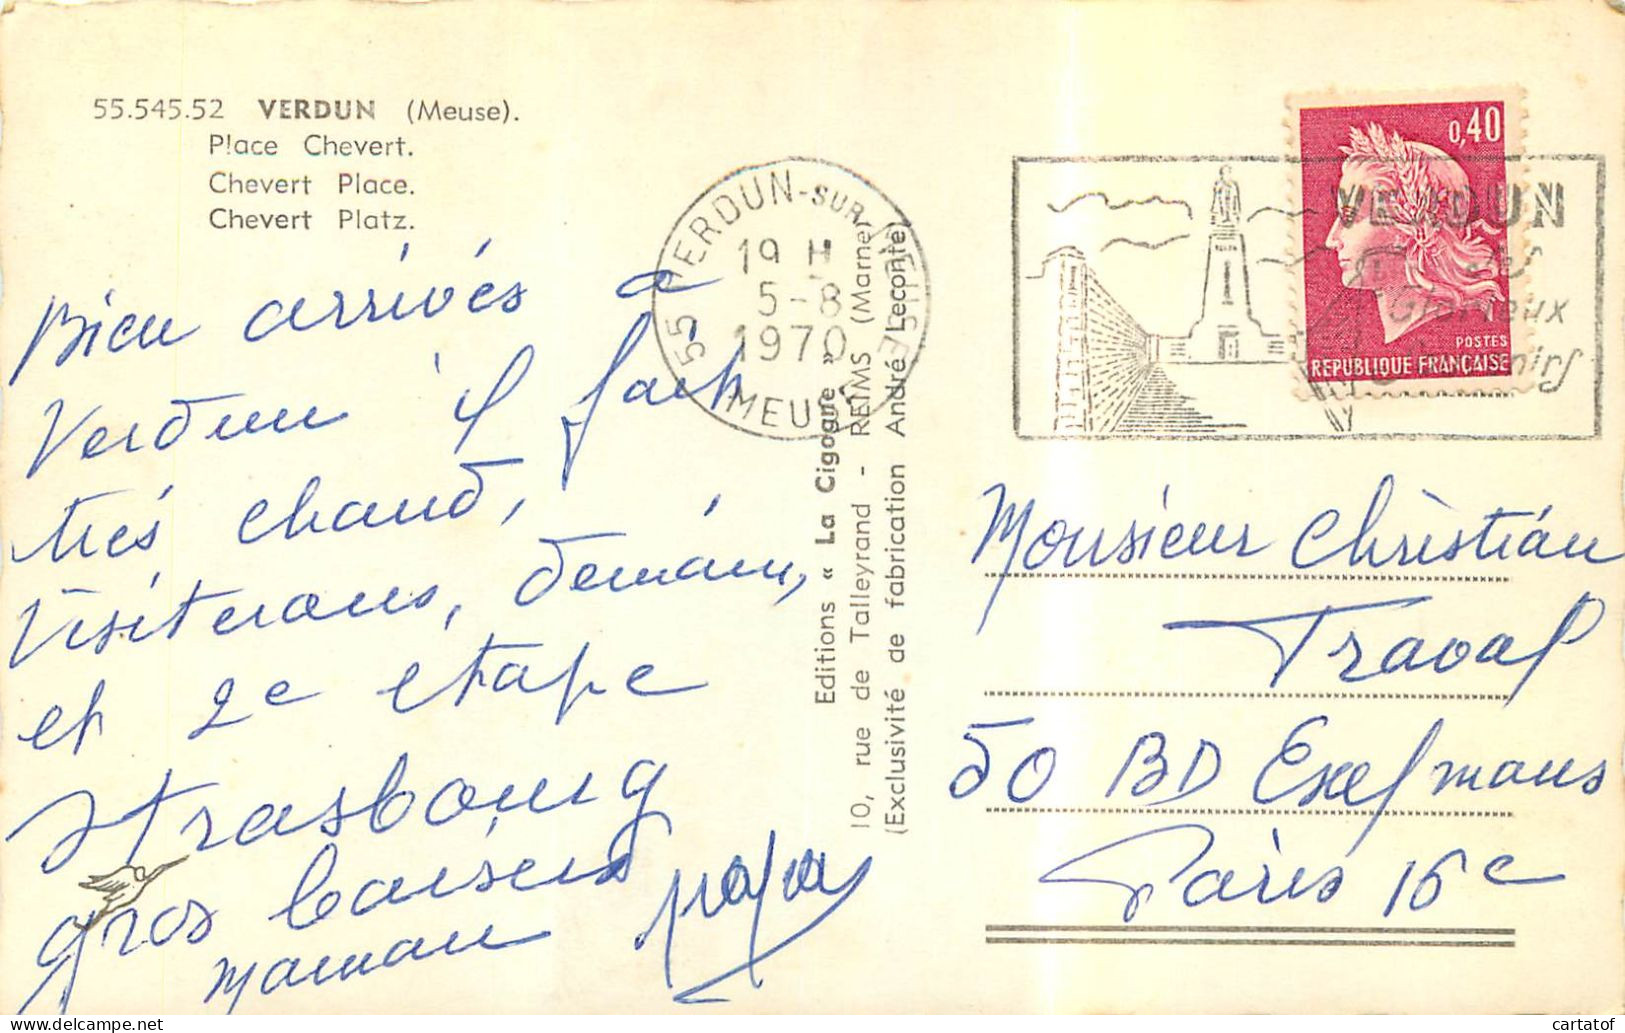 55.545.52 VERDUN (Meuse).
Place Chevert.
Chevert Place.
Chevert Platz.
Bien arrivés à
Verdun il fait
très chaud,
visiterons, demain,
et 2e etape
Strasbourg
gros baisers
maman papa
55 VERDUN-SUR-MEUSE
19 H
5-8
1970
MEUSE
Editions « La Cigogne »
10, rue de Talleyrand - REIMS (Marne)
(Exclusivité de fabrication André Leconte)
VERDUN
Ses
Glorieux
Souvenirs
0,40
POSTES
REPUBLIQUE FRANÇAISE
Monsieur Christian
50 BD Exelmans
Paris 16e
cartatof